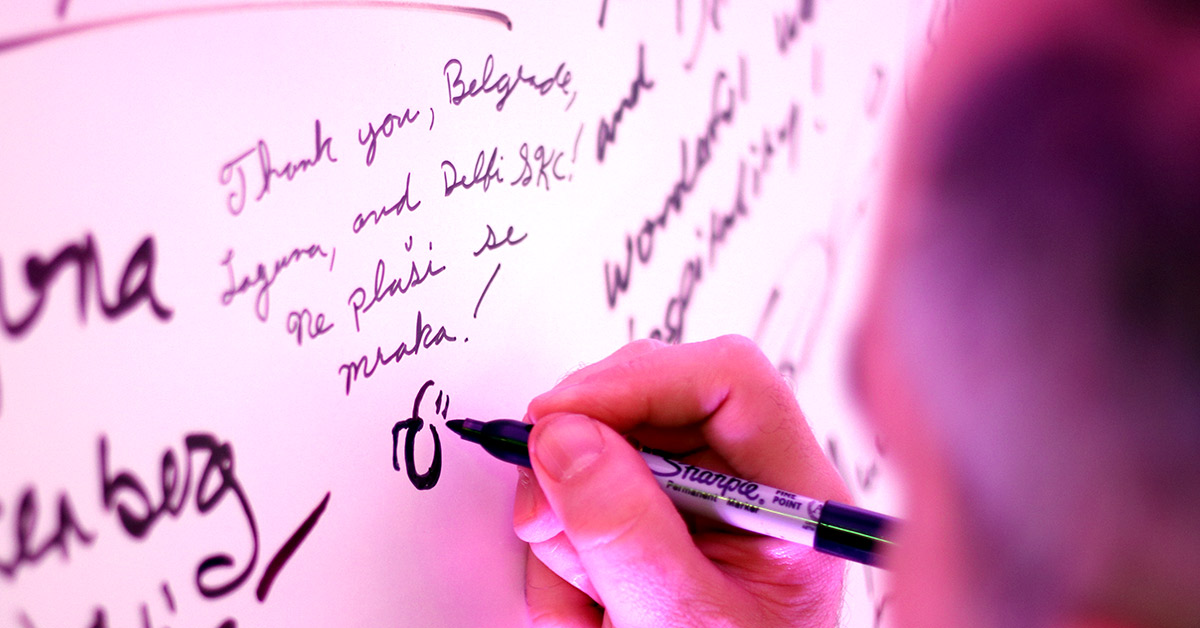 Thank you, Belgrade,
Laguna, and Delfi SKC!
Ne plaši se
mraka!
and
Wonderful
hospitality!
una
enberg
Sharpie
Permanent Marker
FINE
POINT